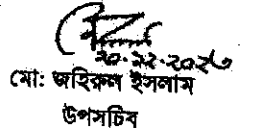 ২০.১২.২০২৩
মো: জহিরুল ইসলাম
উপসচিব